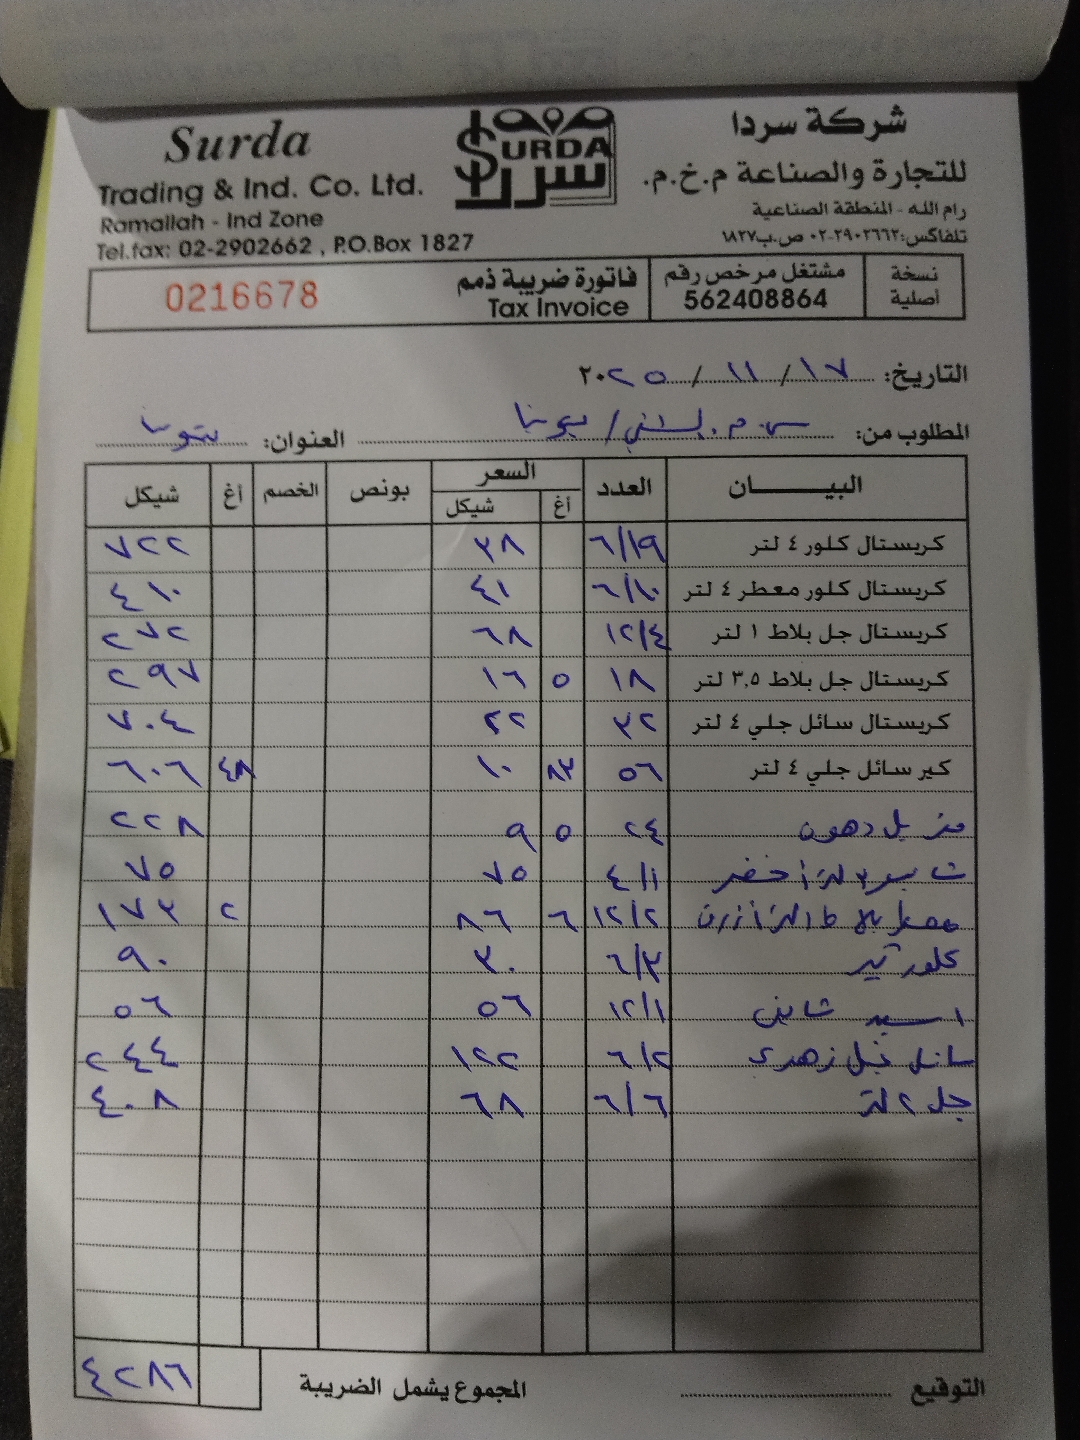 Surda
Trading & Ind. Co. Ltd.
Ramallah - Ind Zone
Tel.fax: 02-2902662 , P.O.Box 1827
SURDA
سردا
شركة سردا
للتجارة والصناعة م.خ.م.
رام الله - المنطقة الصناعية
تلفاكس: ٠٢-٢٩٠٢٦٦٢ ص.ب ١٨٢٧
نسخة أصلية
مشتغل مرخص رقم
562408864
فاتورة ضريبة ذمم
Tax Invoice
0216678
التاريخ: ١٧ / ١١ / ٢٠٢٥
المطلوب من: س.م. / العنوان:
البيان العدد السعر بونص الخصم أغ شيكل
أغ شيكل
كريستال كلور ٤ لتر ٦/١٩ ٣٨ ٧٢٢
كريستال كلور معطر ٤ لتر ٦/١٠ ٤١ ٤١٠
كريستال جل بلاط ١ لتر ١٢/٤ ٦٨ ٢٧٢
كريستال جل بلاط ٣,٥ لتر ١٨ ٥ ١٦ ٢٩٧
كريستال سائل جلي ٤ لتر ٣٢ ٢٢ ٧٠٤
كير سائل جلي ٤ لتر ٥٦ ٨٣ ١٠ ٤٨ ٦٠٦
مزيل دهون ٢٤ ٥ ٩ ٢٢٨
أخضر ٤/١ ٧٥ ٧٥
معطر بلاط ١ لتر أزرق ١٢/٢ ٦ ٨٦ ٢ ١٧٣
كلور ٦/٣ ٣٠ ٩٠
اسيد شاين ١٢/١ ٥٦ ٥٦
سائل زهري ٦/٢ ١٢٢ ٢٤٤
جل ٢ لتر ٦/٦ ٦٨ ٤٠٨
التوقيع المجموع يشمل الضريبة ٤٢٨٦